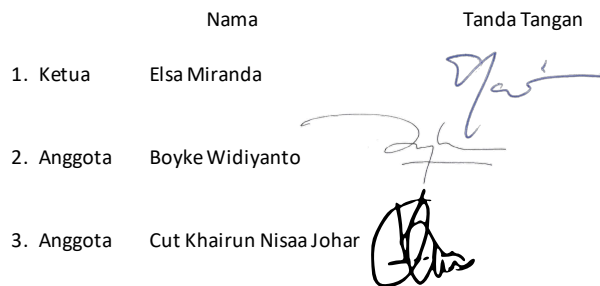 Nama Tanda Tangan
1. Ketua Elsa Miranda
2. Anggota Boyke Widiyanto
3. Anggota Cut Khairun Nisaa Johar